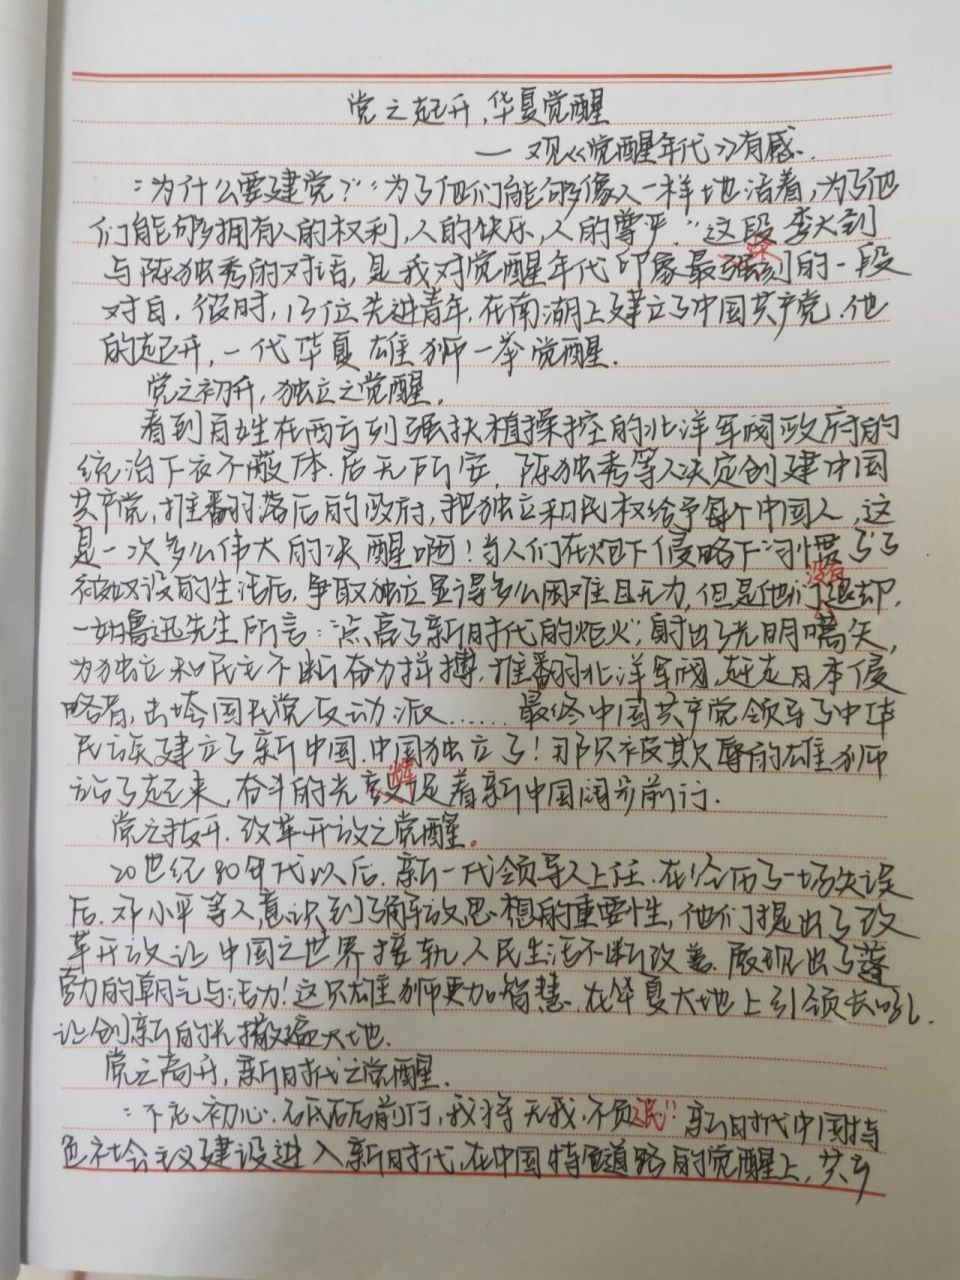 党之起升,华夏觉醒
— 观《觉醒年代》有感.
"为什么要建党?""为了他们能够像人一样地活着,为了他
们能够拥有人的权利,人的快乐,人的尊严."这段李大钊
与陈独秀的对话,是我对觉醒年代印象最深刻的一段
对白.彼时,13位先进青年,在南湖上建立了中国共产党.他
的起升,一代华夏雄狮一举觉醒.
党之初升,独立之觉醒.
看到百姓在西方列强扶植操控的北洋军阀政府的
统治下衣不蔽体.居无所安,陈独秀等人决定创建中国
共产党,推翻落后的政府,把独立和民权给予每个中国人,这
是一次多么伟大的决醒啊!当人们在炮下侵略下习惯了
被奴役的生活后,争取独立显得多么困难且无力,但是他们没有退却,
一如鲁迅先生所言:"点亮了新时代的炬火",射出了光明嚆矢,
为独立和民主不断奋力拼搏,推翻北洋军阀,赶走日本侵
略者,击垮国民党反动派......最终中国共产党领导了中华
民族建立了新中国.中国独立了!那只被欺辱的雄狮
站了起来,奋斗的光辉 着新中国阔步前行.
党之拔升.改革开放之觉醒。
20世纪80年代以后.新一代领导人上任.在经历了一场失误
后.邓小平等人意识到了解放思想的重要性,他们提出了改
革开放让中国之世界接轨.人民生活不断改善.展现出了蓬
勃的朝气与活力!这只雄狮更加智慧.在华夏大地上引领长吼.
让创新的光撒遍大地.
党之高升,新时代之觉醒.
"不忘初心.砥砺前行,我将无我.不负人民"新时代中国特
色社会主义建设进入新时代.在中国特色道路的觉醒上,共产